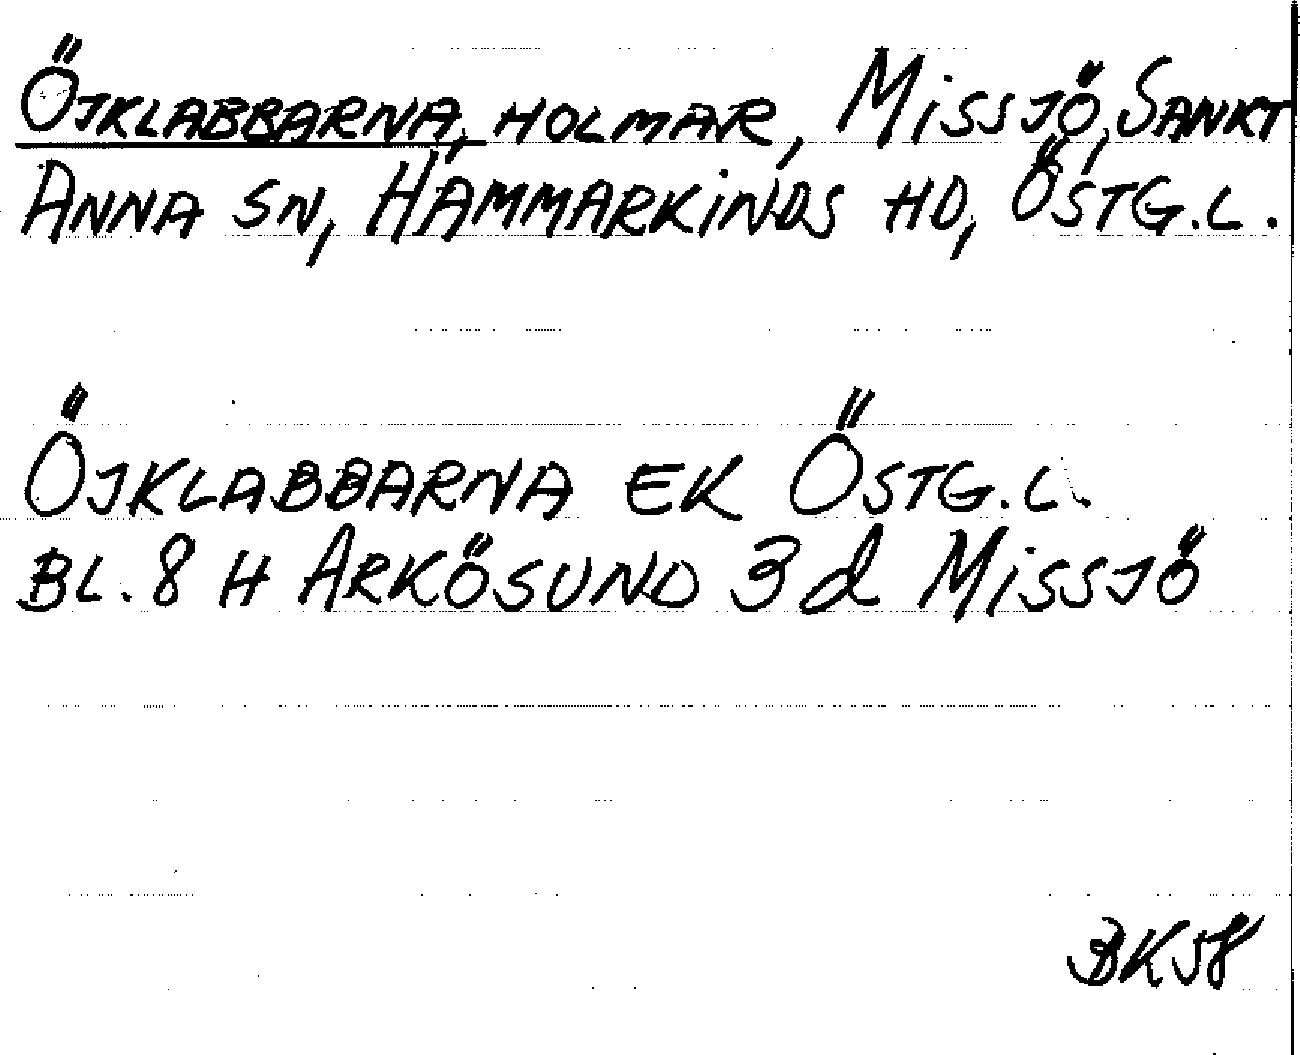 Öjklabbarna, holmar, Missjö, Sankt
Anna sn, Hammarkinds hd, Östg.l.
Öjklabbarna EK Östg.l.
Bl. 8 H Arkösund 3 d Missjö
BK58